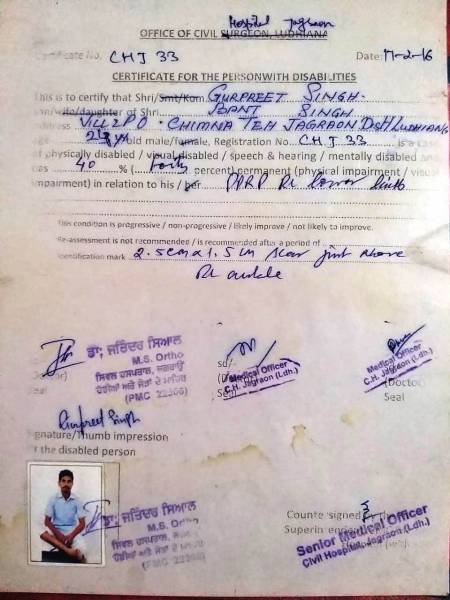 Hospital Jagraon
OFFICE OF CIVIL SURGEON, LUDHIANA
Certificate No. CHJ 33 Date: 17-2-16
CERTIFICATE FOR THE PERSONWITH DISABILITIES
This is to certify that Shri/Smt/Kom GURPREET SINGH
son/wife/daughter of Shri BANT SINGH
address VILL & PO - CHIMNA TEH JAGRAON Distt LUDHIANA
age old male/fumale, Registration No. CHJ 33 is a case
of physically disabled / visual disabled / speech & hearing / mentally disabled and
has 40 % ( Forty percent) permanent (physical impairment / visual
impairment) in relation to his / her PPRP Rt lower limb
This condition is progressive / non-progressive / likely improve / not likely to improve.
Re-assessment is not recommended / is recommended after a period of
Identification mark 2.5cm x 1.5cm scar just above
Rt ankle
ਡਾ. ਜਤਿੰਦਰ ਸਿਆਲ
M.S. Ortho
ਸਿਵਲ ਹਸਪਤਾਲ, ਜਗਰਾਉਂ
ਹੱਡੀਆਂ ਅਤੇ ਜੋੜਾਂ ਦੇ ਮਾਹਿਰ
(PMC 22306)
sd/-
Medical Officer
C.H. Jagraon (Ldh.)
Seal
Medical Officer
C.H. Jagraon (Ldh.)
(Doctor)
Seal
Gurpreet Singh
Signature/Thumb impression
of the disabled person
ਡਾ. ਜਤਿੰਦਰ ਸਿਆਲ
M.S. Ortho
Counte signed
Senior Medical Officer
Civil Hospital, Jagraon (Ldh.)